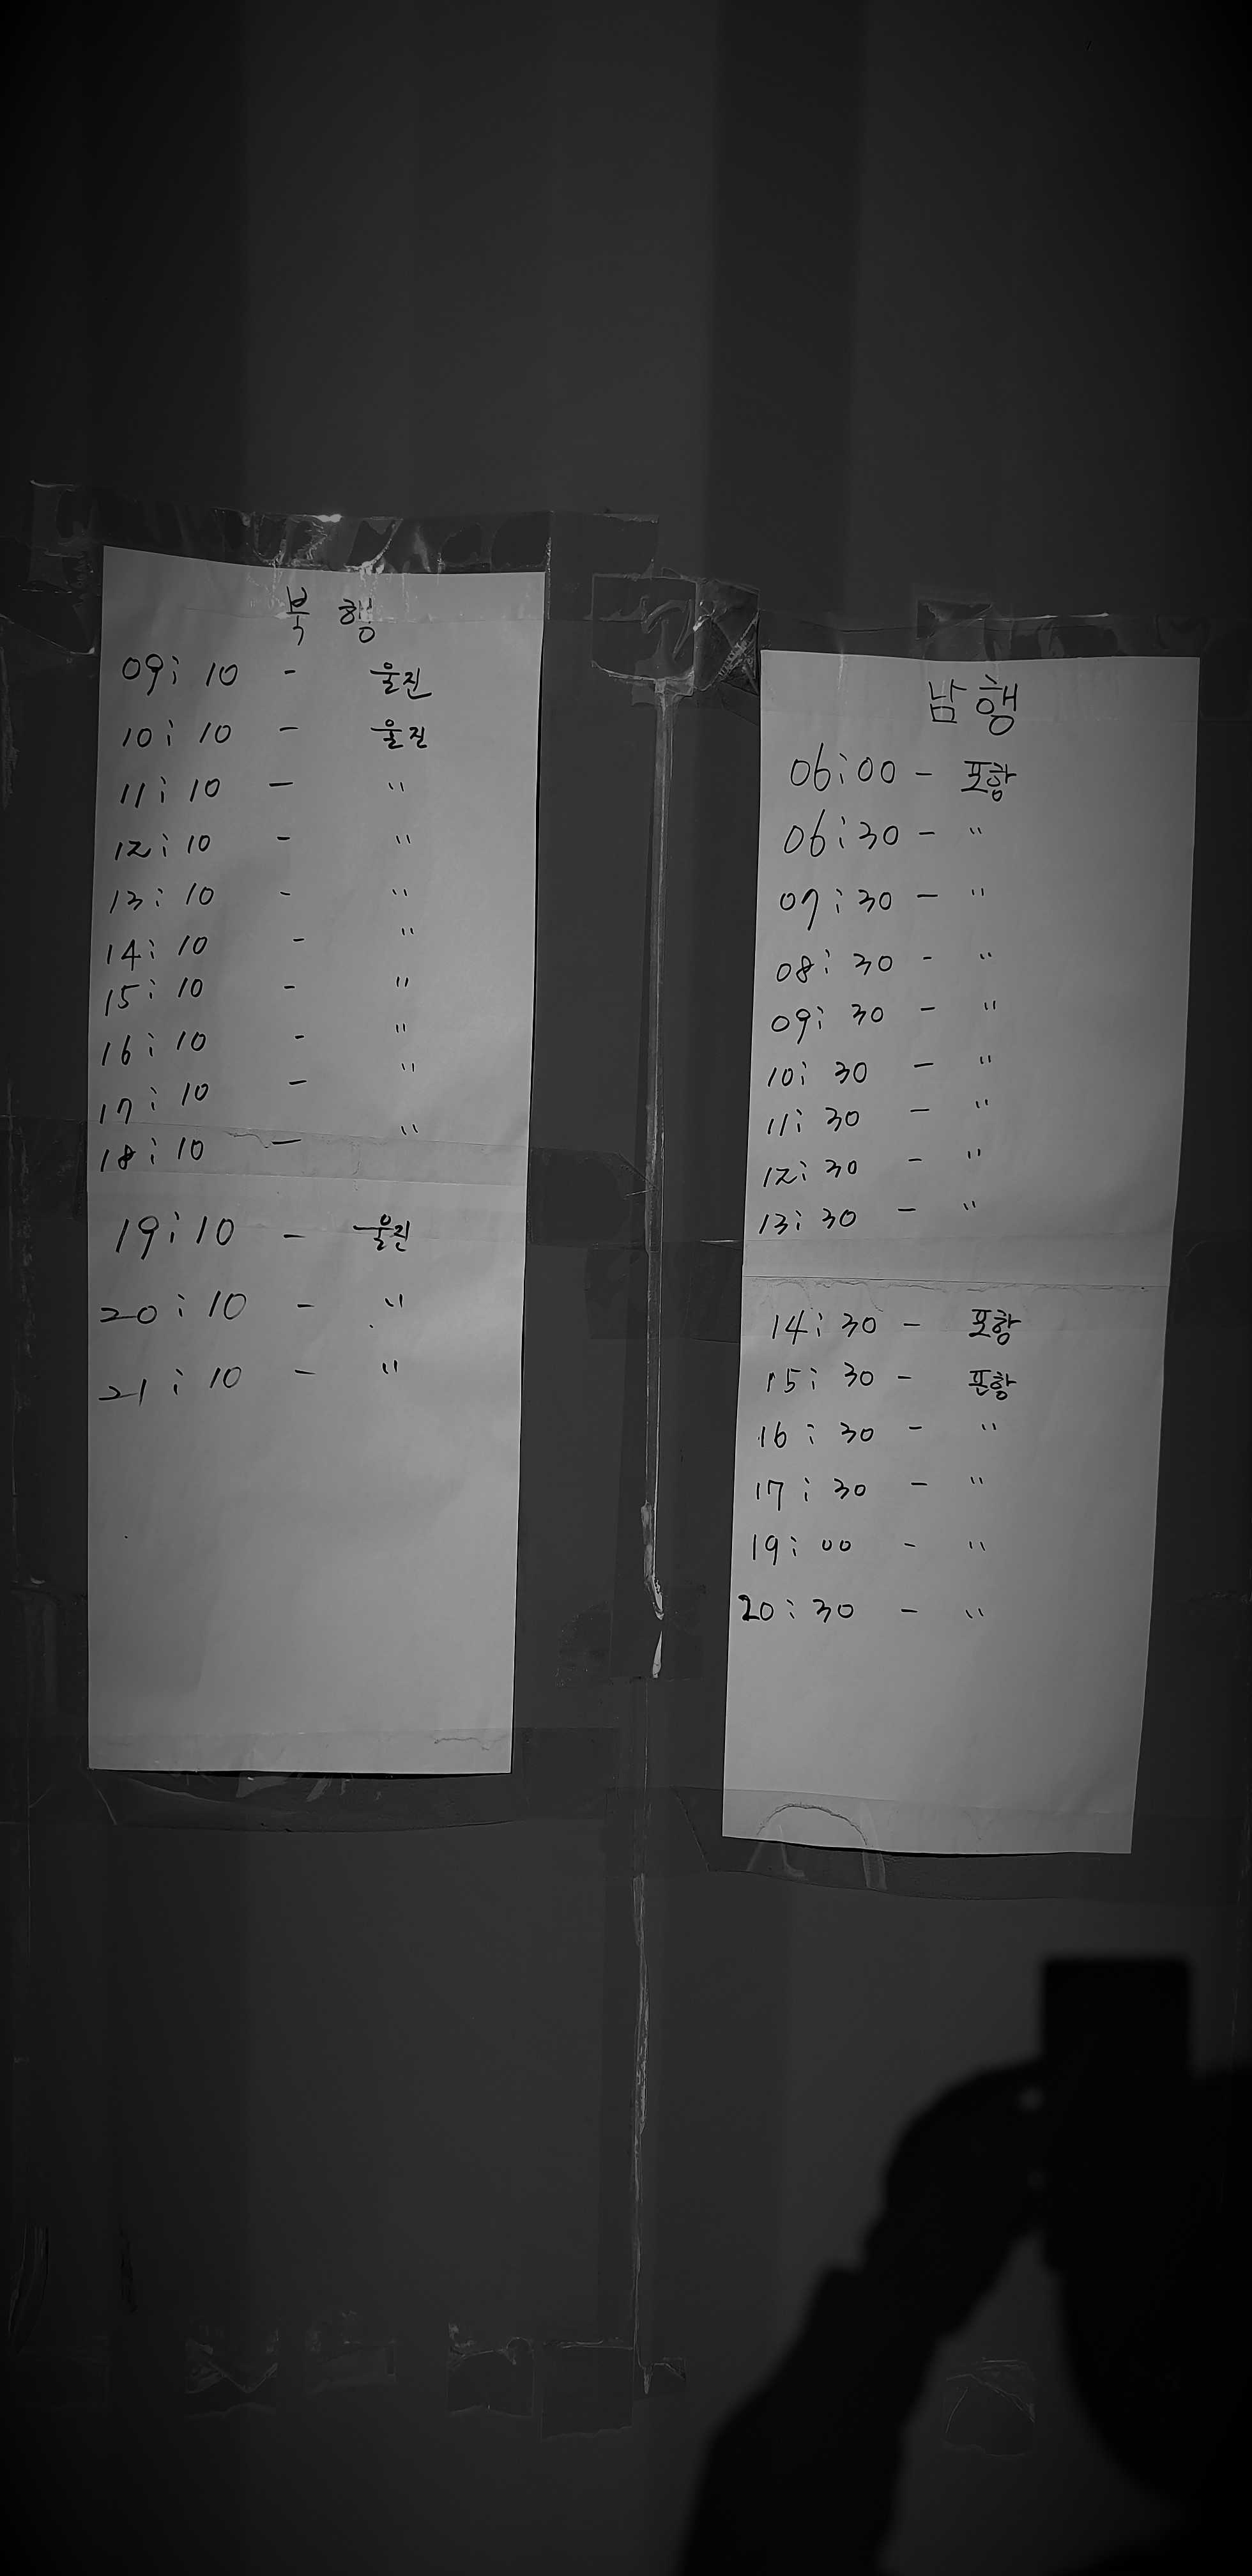 북행
09:10 - 울진
10:10 - 울진
11:10 - "
12:10 - "
13:10 - "
14:10 - "
15:10 - "
16:10 - "
17:10 - "
18:10 - "
19:10 - 울진
20:10 - "
21:10 - "
남행
06:00 - 포항
06:30 - "
07:30 - "
08:30 - "
09:30 - "
10:30 - "
11:30 - "
12:30 - "
13:30 - "
14:30 - 포항
15:30 - 포항
16:30 - "
17:30 - "
19:00 - "
20:30 - "